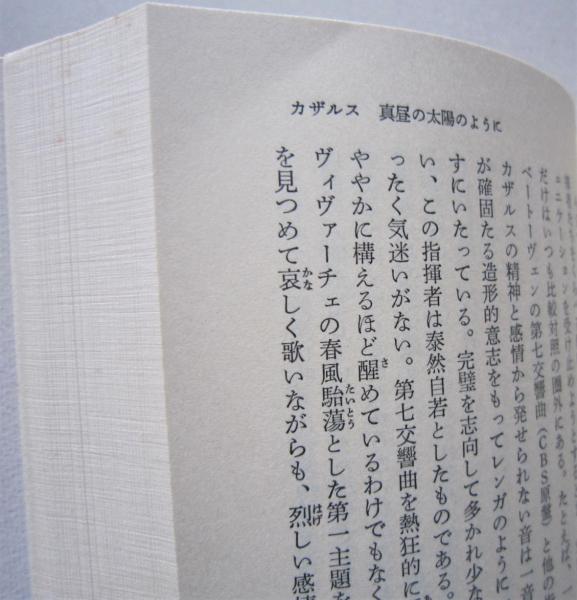 カザルス　真昼の太陽のように
ュニケーションを受け止めようと
だけはいつも比較対照の圏外にある。たとえば、一
ベートーヴェンの第七交響曲（CBS原盤）と他の指
カザルスの精神と感情から発せられない音は一音
が確固たる造形的意志をもってレンガのように
すにいたっている。完璧を志向して多かれ少な
い、この指揮者は泰然自若としたものである。
ったく気迷いがない。第七交響曲を熱狂的に
ややかに構えるほど醒めているわけでもなく
ヴィヴァーチェの春風駘蕩とした第一主題を
を見つめて哀しく歌いながらも、烈しい感情